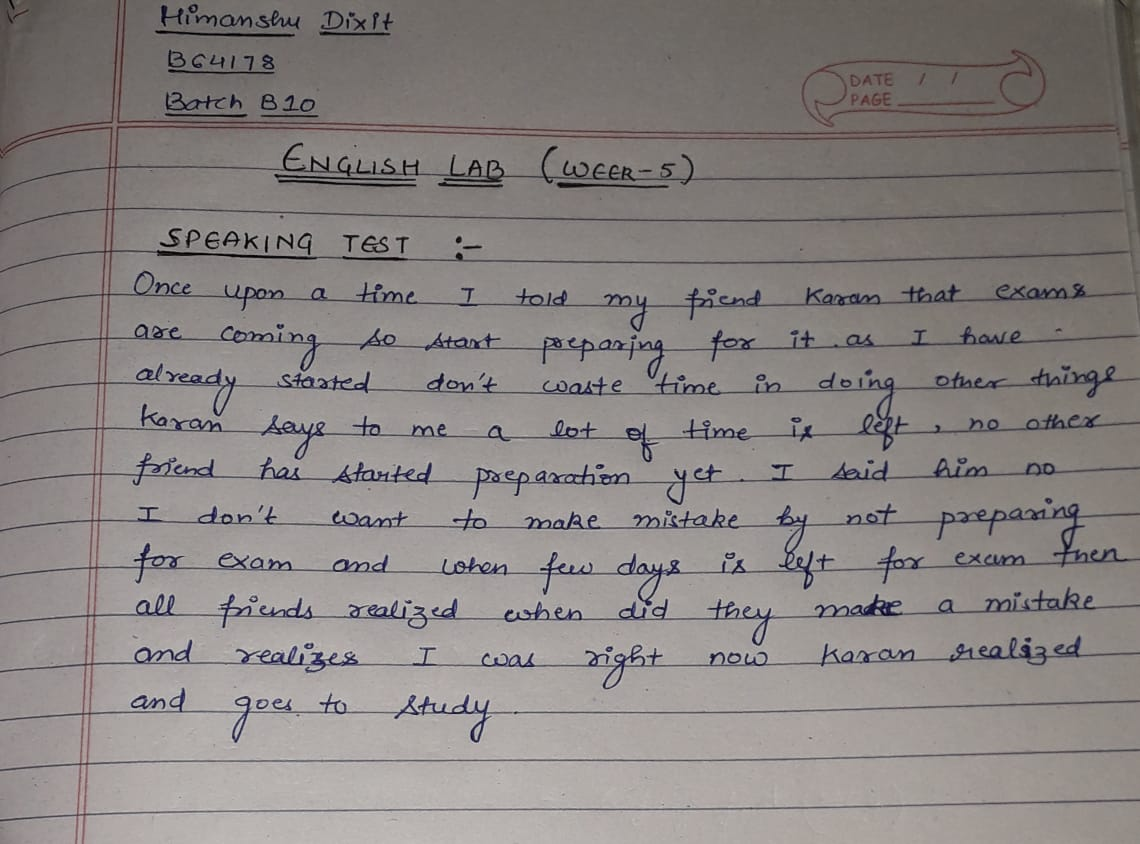 Himanshu Dixit
B64178
Batch B10
DATE / /
PAGE
ENGLISH LAB (WEEK-5)
SPEAKING TEST :-
Once upon a time I told my friend Karan that exams
are coming so start preparing for it as I have
already started don't waste time in doing other things
Karan says to me a lot of time is left, no other
friend has started preparation yet. I said him no
I don't want to make mistake by not preparing
for exam and when few days is left for exam then
all friends realized when did they make a mistake
and realizes I was right now Karan realized
and goes to study.